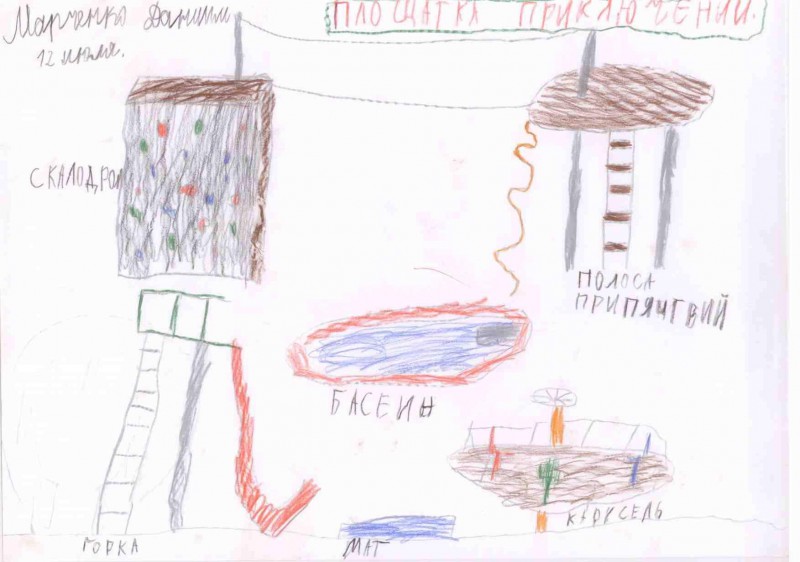 Марченко Даниил
12 июля.
ПЛОЩАТКА ПРИКЛЮЧЕНИЙ.
СКАЛОДРОМ
ПОЛОСА
ПРИПЯЧГВИЙ
БАСЕИН
КАРУСЕЛЬ
ГОРКА
МАТ